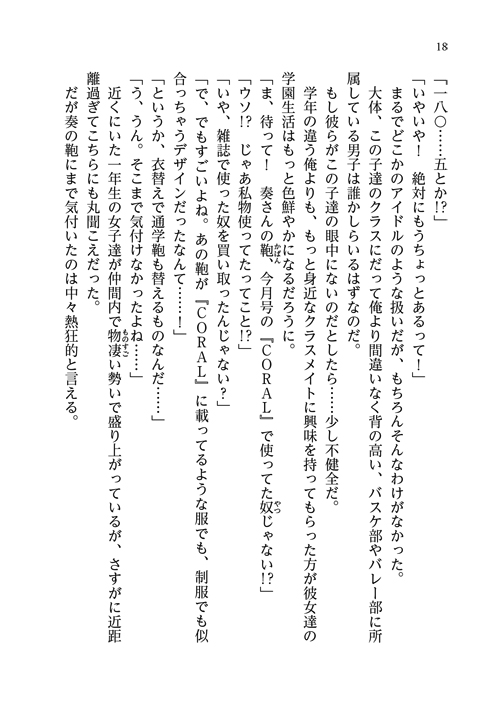 18
「一八〇……五とか!?」
「いやいや！　絶対にもうちょっとあるって！」
　まるでどこかのアイドルのような扱いだが、もちろんそんなわけがなかった。
　大体、この子達のクラスにだって俺より間違いなく背の高い、バスケ部やバレー部に所
属している男子は誰かしらいるはずなのだ。
　もし彼らがこの子達の眼中にないのだとしたら……少し不健全だ。
　学年の違う俺よりも、もっと身近なクラスメイトに興味を持ってもらった方が彼女達の
学園生活はもっと色鮮やかになるだろうに。
「ま、待って！　奏さんの鞄、今月号の『ＣＯＲＡＬ』で使ってた奴じゃない!?」
「ウソ!?　じゃあ私物使ってたってこと!?」
「いや、雑誌で使った奴を買い取ったんじゃない？」
「で、でもすごいよね。あの鞄が『ＣＯＲＡＬ』に載ってるような服でも、制服でも似
合っちゃうデザインだったなんて……！」
「というか、衣替えで通学鞄も替えるものなんだ……」
「う、うん。そこまで気付けなかったよね……」
　近くにいた一年生の女子達が仲間内で物凄い勢いで盛り上がっているが、さすがに近距
離過ぎてこちらにも丸聞こえだった。
　だが奏の鞄にまで気付いたのは中々熱狂的と言える。